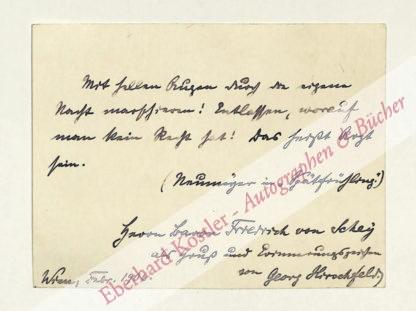 Mit hellen Augen durch die eigene
Nacht marschieren! Entlassen, worauf
man kein Recht hat! Das heißt Arzt
sein.
(Neumeyer in „Spätfrühling“)
Herrn Baron Friedrich von Schey
als Gruß und Erinnerungszeichen
Wien, Febr. 190 von Georg Hirschfeld.
Eberhard Köstler - Autographen & Bücher